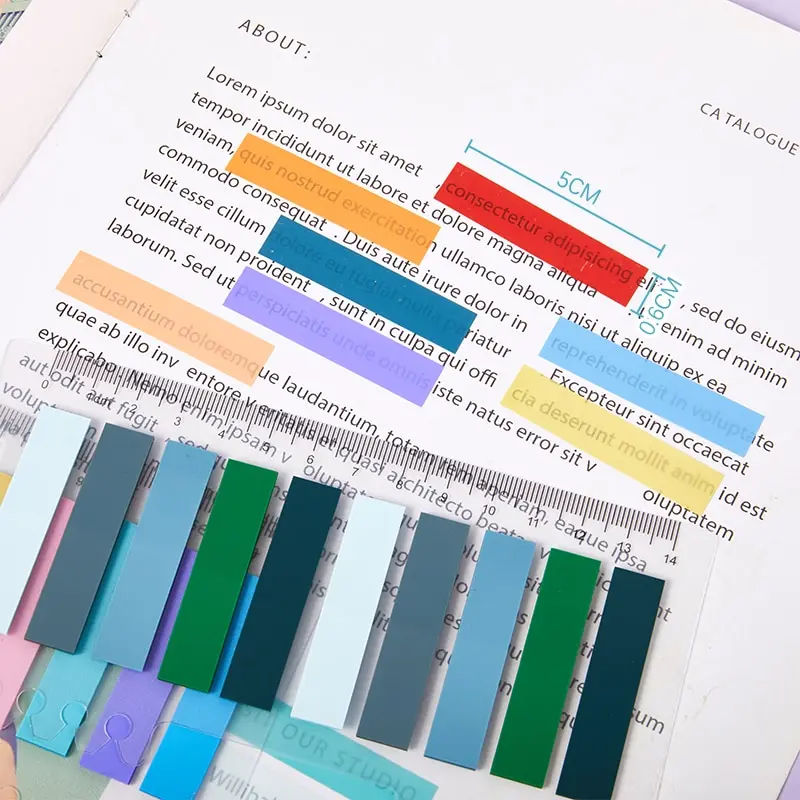 ABOUT:
CATALOGUE
Lorem ipsum dolor sit amet , consectetur adipisicing eli , sed do eiusm
tempor incididunt ut labore et dolore magna aliqua enim ad minim
veniam, quis nostrud exercitation ullamco laboris nisi ut aliquip ex ea
commodo consequat . Duis aute irure dolor in reprehenderit in voluptate
velit esse cillum dolore eu fugiat nulla pariatur Excepteur sint occaecat
cupidatat non proident , sunt in culpa qui offi cia deserunt mollit anim id est
laborum. Sed ut perspiciatis unde omnis iste natus error sit v oluptatem
accusantium doloremque laudantium, totam rem aperiam, eaque ipsa
quae ab illo inv entore veritatis et quasi architecto beata
explicabo. Nemo enim ipsam v oluptat
aut odit aut fugit
5CM
0.6CM
0 2 3 4 5 6 7 8 9 10 11 12 13 14
OUR STUDIO